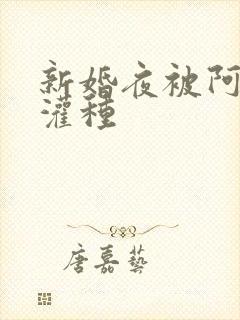 新婚夜被阿
灌種
唐嘉藝